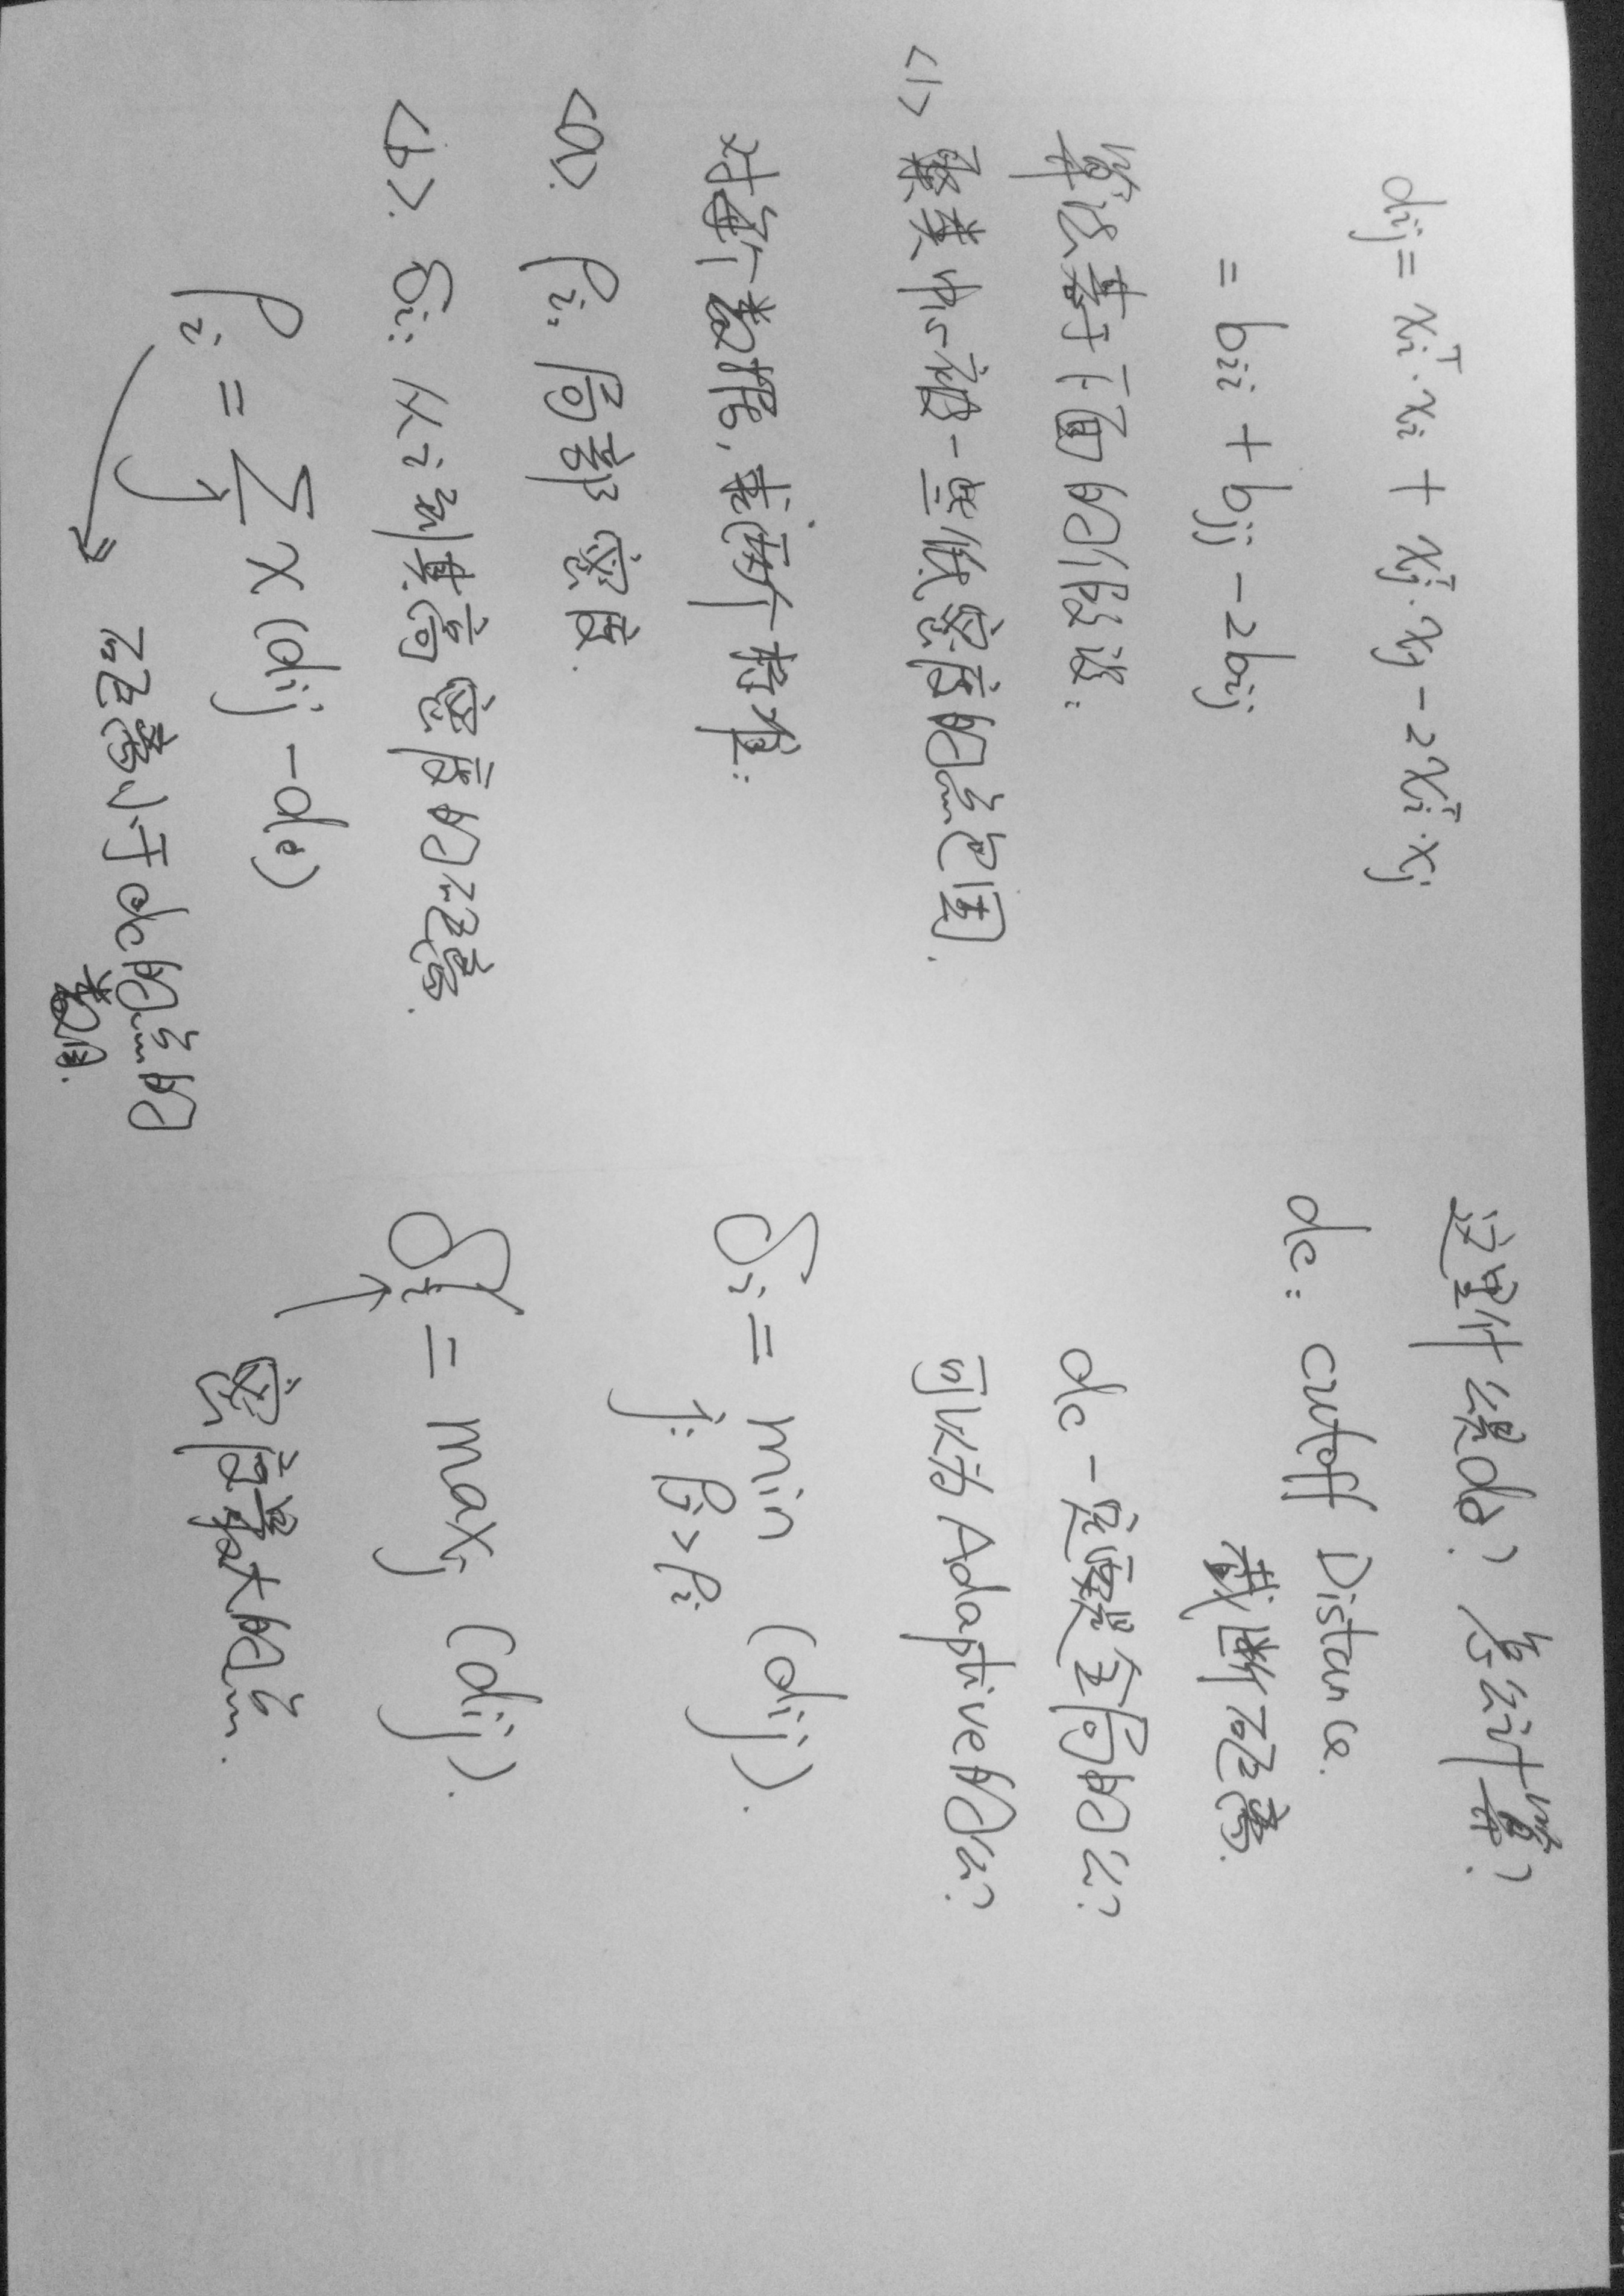 dij = xiᵀ·xi + xjᵀ·xj - 2xiᵀ·xj
= bii + bjj - 2bij
算法基于下面的假设:
<1> 聚类中心被一些低密度的点包围.
对每个数据,求两个标准:
<a>. ρi, 局部密度.
<b>. δi: 从i到高密度的距离.
ρi = Σj χ(dij - dc)
距离小于dc的点的
数目.
这里什么是dc? 怎么计算?
dc: cutoff Distance.
截断距离.
dc 一定要是全局的么?
可以为Adaptive的么?
δi = min (dij).
j: ρj > ρi
δi = maxj (dij).
密度最大的点.